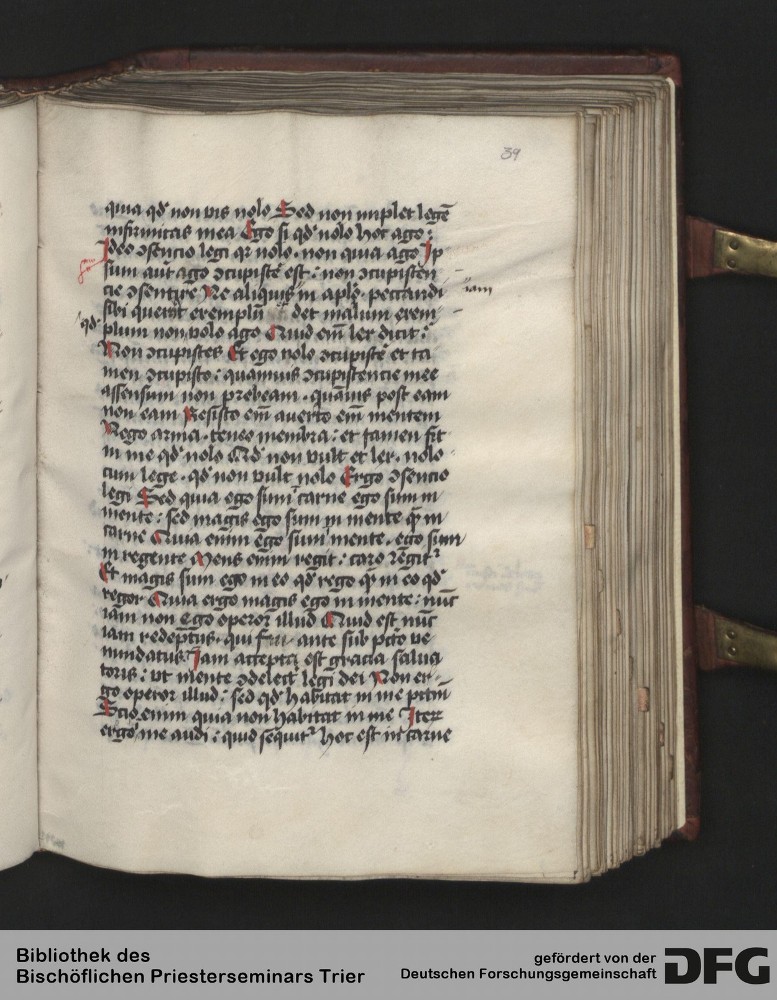 39
quia qd' non vis nolo Sed non implet legē
infirmitas mea Ego si qd' nolo hoc ago :
Ideo ↄsencio legi qr nolo · non quia ago Ip
sum aut̄ ago ↄcupistē est : non ↄcupistēn
cie ↄsentire Ne aliquis in apl'o peccandi -iam
sibi querit exemplū det malum exem
qd' plum non volo ago Quid em̄ lex dicit :
Non ↄcupistes Et ego nolo ↄcupistē et ta
men ↄcupisto : quamuis ↄcupistencie mee
assensum non prebeam · quāuis post eam
non eam Resisto em̄ auerto em̄ mentem
Nego arma · teneo membra : et tamen fit
in me qd' nolo Qd' non vult et lex · nolo
cum lege · qd' non vult nolo Ergo ↄsencio
legi Sed quia ego sum in carne ego sum in
mente : sed magis ego sum in mente q̄ in
carne Quia enim ego sum mente · ego sum
in regente Mens enim regit : caro regit²
Et magis sum ego in eo qd' rego q̄ in eo qd'
regor Quia ergo magis ego in mente : nūc
iam non ego operor illud Quid est nūc
iam redemptus · qui fui ante sub pctō ve
nundatus Iam accepta est gracia salua
toris : vt mente ↄdelect' legi dei Non er
go operor illud : sed qd' habitat in me pctm̄
Scio enim quia non habitat in me Iter
ergo me audi : quid sequit² hoc est in carne
Bibliothek des
Bischöflichen Priesterseminars Trier
gefördert von der
Deutschen Forschungsgemeinschaft
DFG